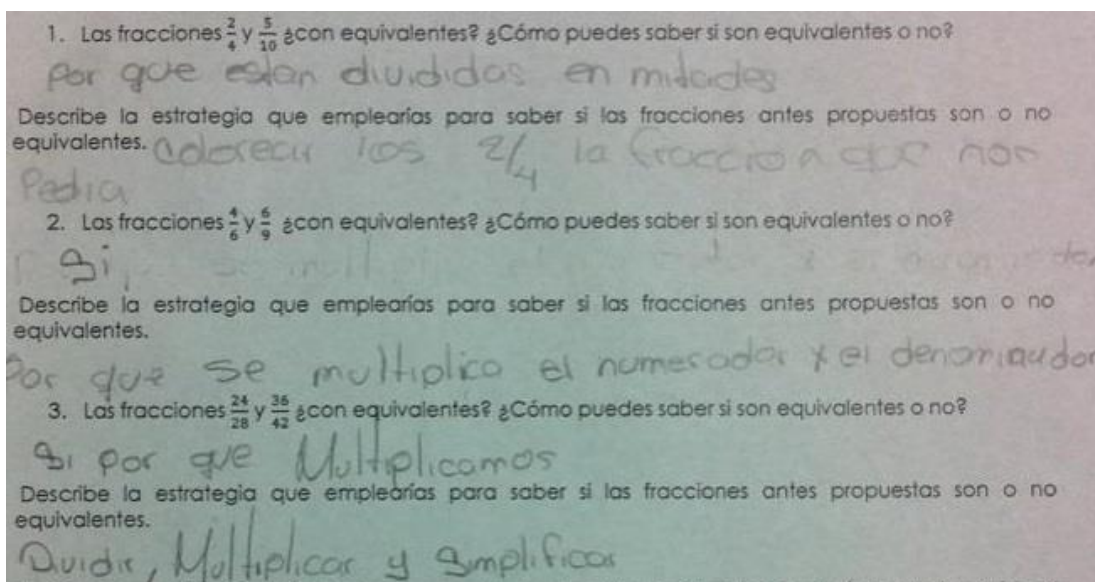 1. Las fracciones 2/4 y 5/10 ¿con equivalentes? ¿Cómo puedes saber si son equivalentes o no?
Por que estan divididas en mitades
Describe la estrategia que emplearías para saber si las fracciones antes propuestas son o no
equivalentes. Colorear los 2/4 la fraccion que non
Pedia
2. Las fracciones 4/6 y 6/9 ¿con equivalentes? ¿Cómo puedes saber si son equivalentes o no?
Si,
Describe la estrategia que emplearías para saber si las fracciones antes propuestas son o no
equivalentes.
Por que se multiplico el numerador y el denominador
3. Las fracciones 24/28 y 36/42 ¿con equivalentes? ¿Cómo puedes saber si son equivalentes o no?
Si por que Multiplicamos
Describe la estrategia que emplearías para saber si las fracciones antes propuestas son o no
equivalentes.
Dividir, Multiplicar y Simplificar